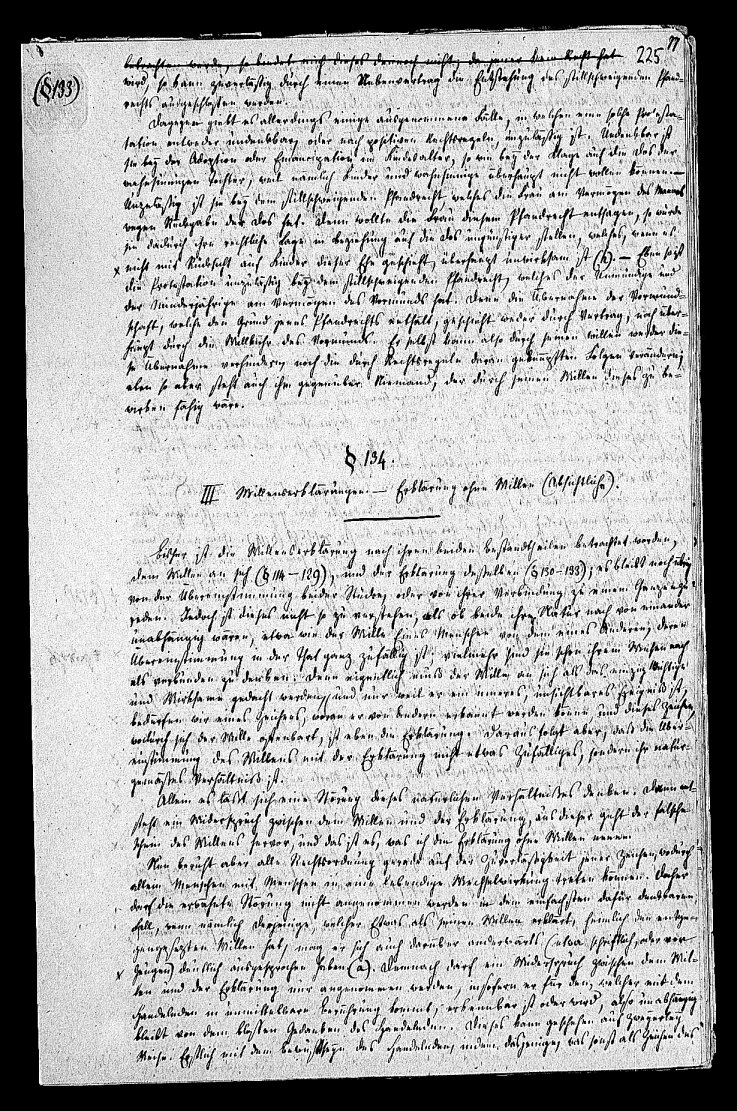 77
225
(§133)
betrachtet werde, so bindet mich dieses dennoch nicht, da jener kein Recht hat
wird, so kann zuverlässig durch einen Nebenvertrag die Entstehung des stillschweigenden Pfand-
rechts ausgeschlossen werden.
Dagegen giebt es allerdings einige ausgenommene Fälle, in welchen eine solche Protesta-
tion entweder undenkbar, oder nach positiven Rechtsregeln, unzulässig ist. Undenkbar ist
sie bey der Adoption oder Emancipation im Kindesalter, so wie bey der Klage auf die Dos der
wahnsinnigen Tochter, weil nämlich Kinder und Wahnsinnige überhaupt nicht wollen können. —
Unzulässig ist sie bey dem stillschweigenden Pfandrecht welches die Frau am Vermögen des Mannes
wegen Rückgabe der Dos hat. Denn wollte die Frau diesem Pfandrecht entsagen, so würde
sie dadurch ihre rechtliche Lage in Beziehung auf die Dos ungünstiger stellen, welches, wenn es
x nicht mit Rücksicht auf Kinder dieser Ehe geschieht, überhaupt unwirksam ist (h). — Eben so ist
die Protestation unzulässig bey dem stillschweigenden Pfandrecht, welches der Unmündige und
der Minderjährige am Vermögen des Vormunds hat. Denn die Übernahme der Vormund-
schaft, welche den Grund jenes Pfandrechts enthält, geschieht weder durch Vertrag, noch über-
haupt durch die Willkühr des Vormunds. Er selbst kann also durch seinen Willen weder die-
se Übernahme verhindern, noch die durch Rechtsregeln daran geknüpften Folgen verändern;
eben so aber steht auch ihm gegenüber Niemand, der durch seinen Willen dieses zu be-
wirken fähig wäre.
§ 134.
III Willenserklärungen — Erklärung ohne Willen (Absichtliche).
Bisher ist die Willenserklärung nach ihren beiden Bestandtheilen betrachtet worden,
dem Willen an sich (§ 114–129), und der Erklärung desselben (§ 130–133); es bleibt noch übrig
von der Übereinstimmung beider Stücke, oder von ihrer Verbindung zu einem Ganzen zu
reden. Jedoch ist dieses nicht so zu verstehen, als ob beide ihrer Natur nach von einander
unabhängig wären, etwa wie der Wille Eines Menschen von dem eines Anderen, deren
Übereinstimmung in der That ganz zufällig ist; vielmehr sind sie schon ihrem Wesen nach
als verbunden zu denken. Denn eigentlich muß der Wille an sich als das einzig Wichtige
und Wirksame gedacht werden, und nur weil er ein inneres, unsichtbares Ereigniß ist,
bedürfen wir eines Zeichens, woran er von Andern erkannt werden könne, und dieses Zeichen,
wodurch sich der Wille offenbart, ist eben die Erklärung. Daraus folgt aber, daß die Über-
einstimmung des Willens mit der Erklärung nicht etwas Zufälliges, sondern ihr natur-
gemäßes Verhältniß ist.
Allein es läßt sich eine Störung dieses natürlichen Verhältnisses denken. Dann ent-
steht ein Widerspruch zwischen dem Willen und der Erklärung, aus dieser geht der falsche
Schein des Willens hervor, und das ist es, was ich die Erklärung ohne Willen nenne.
Nun beruht aber alle Rechtsordnung gerade auf der Zuverlässigkeit jener Zeichen, wodurch
allein Menschen mit Menschen in eine lebendige Wechselwirkung treten können. Daher
darf die erwähnte Störung nicht angenommen werden in dem einfachsten dafür denkbaren
Fall, wenn nämlich derjenige, welcher Etwas als seinen Willen erklärt, heimlich den entge-
gengesetzten Willen hat, mag er sich auch darüber anderwärts (etwa schriftlich, oder vor
x Zeugen) deutlich ausgesprochen haben (a). Demnach darf ein Widerspruch zwischen dem Wil-
len und der Erklärung nur angenommen werden, insofern er für den, welcher mit dem
Handelnden in unmittelbare Berührung kommt, erkennbar ist oder wird, also unabhängig
bleibt von dem bloßen Gedanken des Handelnden. Dieses kann geschehen auf zweyerley
Weise. Erstlich mit dem Bewußtseyn des Handelnden, indem dasjenige, was sonst als Zeichen des